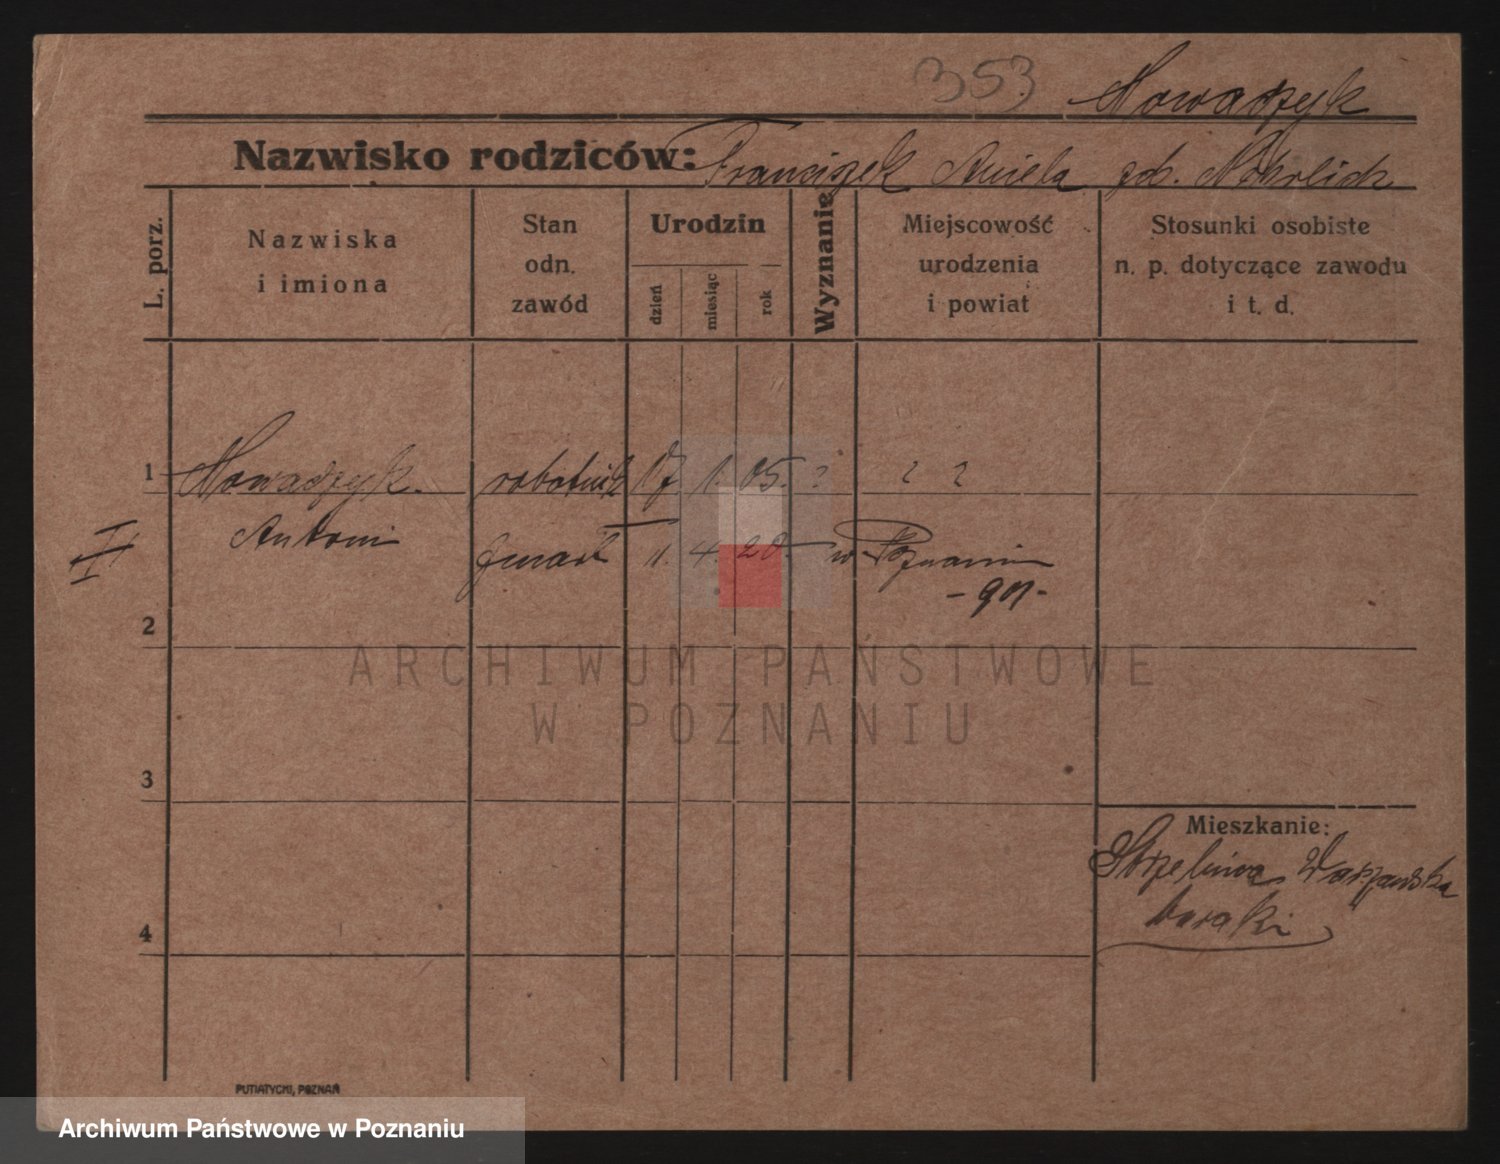 353 Nowaczyk
Nazwisko rodziców: Franciszek Aniela
L. porz.
Nazwiska
i imiona
Stan
odn.
zawód
Urodzin
dzień
miesiąc
rok
Wyznanie
Miejscowość
urodzenia
i powiat
Stosunki osobiste
n. p. dotyczące zawodu
i t. d.
1 Nowaczyk. robotnik 17 1. 05. ? ? ?
II Antoni zmarł 11. 4. 20. w Poznaniu
2
3
4
ARCHIWUM PAŃSTWOWE
W POZNANIU
Mieszkanie:
Strzelnica Warszawska
baraki
PUTIATYCKI, POZNAŃ
Archiwum Państwowe w Poznaniu